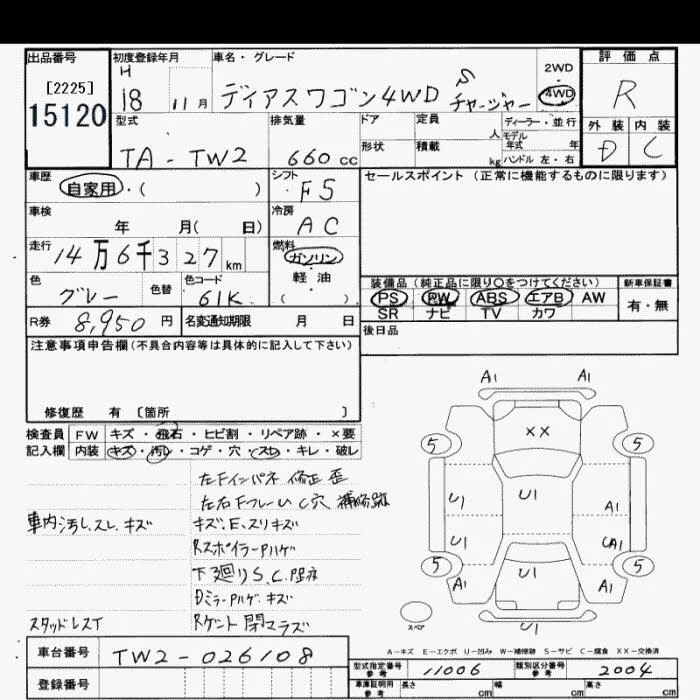 出品番号 初度登録年月 車名・グレード 2WD ・ 4WD 評価点
[2225] H 18 11月 ディアスワゴン4WD Sチャージャー R
15120 型式 排気量 ドア 定員 人 ディーラー・並行 外装 内装
TA-TW2 660cc 形状 積載 kg モデル年式 年 ハンドル 左・右 D C
車歴 自家用・( ) シフト ・F5 セールスポイント(正常に機能するものに限ります)
車検 年 月( 日) 冷房 AC
走行 14万6千327km 燃料 ガソリン・軽油・( )
色 グレー 色替 色コード 61K 装備品(純正品に限り○をつけてください) 新車保証書
PS PW ABS エアB AW 有・無
R券 8,950円 名変通知期限 月 日 SR ナビ TV カワ
注意事項申告欄(不具合内容等は具体的に記入して下さい) 後日品
修復歴 有 〔箇所 〕
検査員 FW キズ・飛石・ヒビ割・リペア跡・×要
記入欄 内装 キズ・汚レ・コゲ・穴・スレ・キレ・破レ
左Fインパネ 修正 歪
左右Fフレーム C穴 補修跡
車内汚レ、スレ、キズ キズ、E、スリキズ
RスポイラーPハゲ
下廻りS、C、凹
DミラーPハゲ、キズ
スタッドレスT Rゲート 閉マラズ
A1 A1
××
5 5
U1 U1 A1
U1 CA1
5 5
A1 U1 A1
スペア U1
A―キズ E―エクボ U―凹み W―補修跡 S―サビ C―腐食 XX―交換済
車台番号 TW2-026108 型式指定番号 参考 11006 類別区分番号 参考 2004
登録番号 車庫証明用 参考 長さ cm 幅 cm 高さ cm